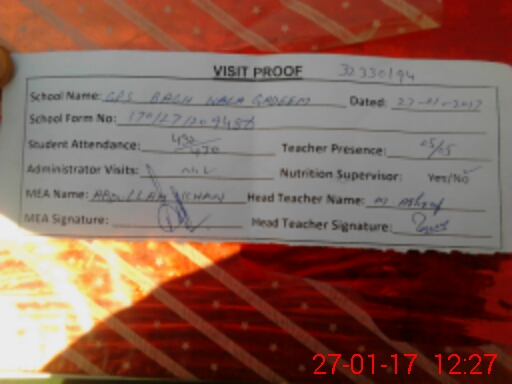 VISIT PROOF 32330194
School Name: GPS BAGH WALA QADEEM Dated: 27-01-2017
School Form No:
Student Attendance: 432/470 Teacher Presence: 05/05
Administrator Visits: NIL Nutrition Supervisor: Yes/No
MEA Name: ABDULLAH KHAN Head Teacher Name: M Ashraf
MEA Signature: Head Teacher Signature:
27-01-17 12:27